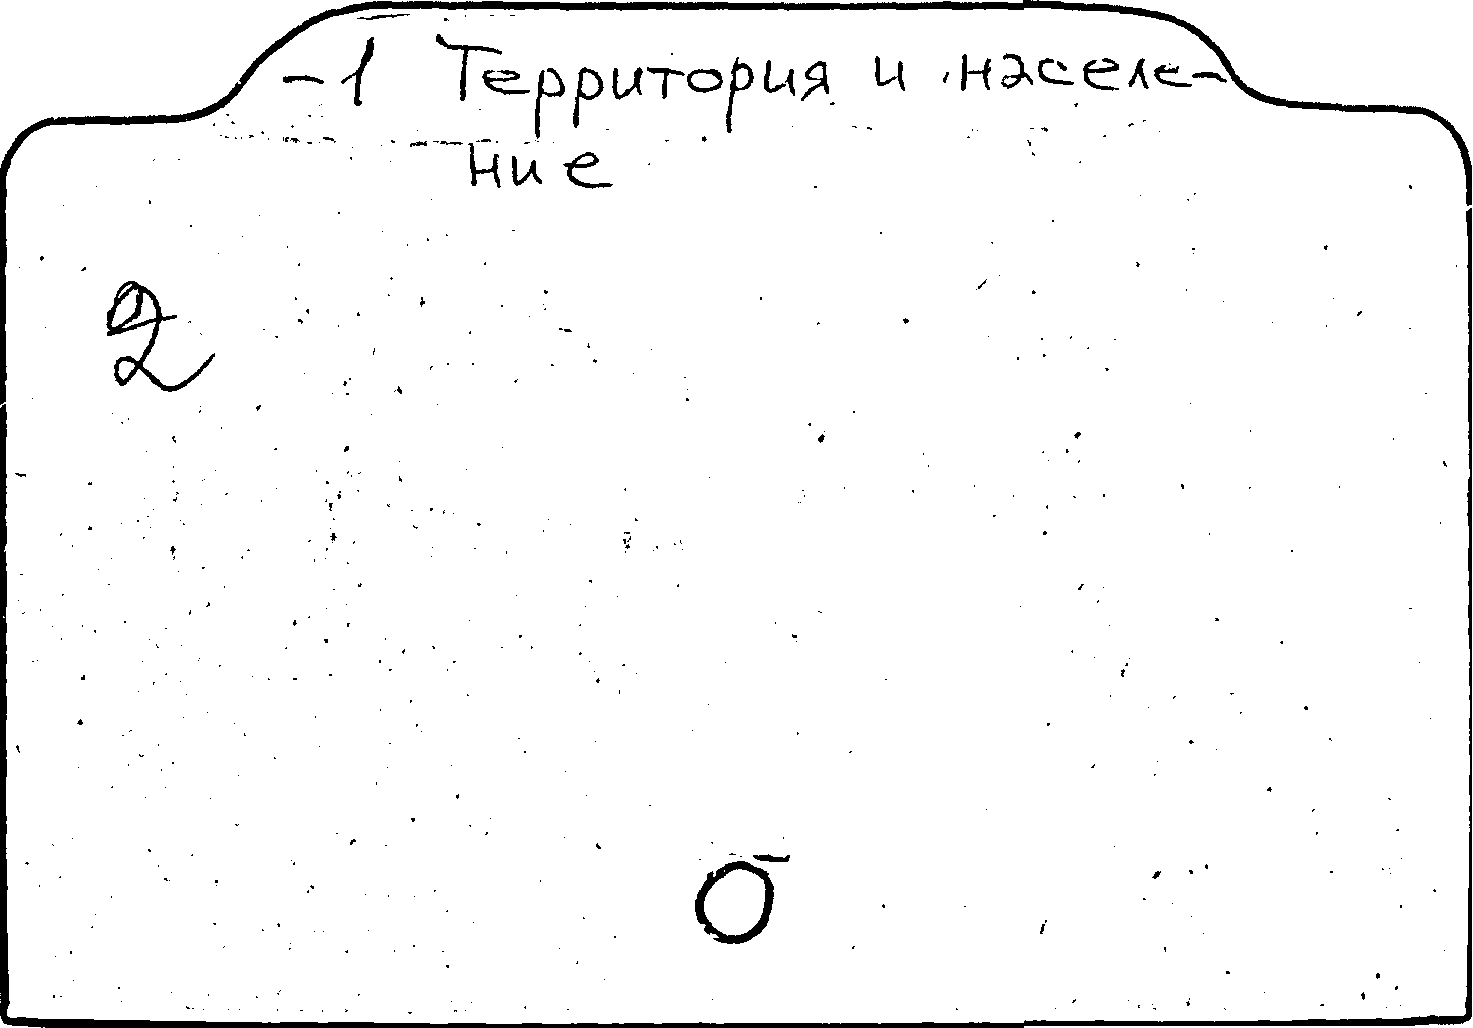 -1 Территория и населе-
ние
2